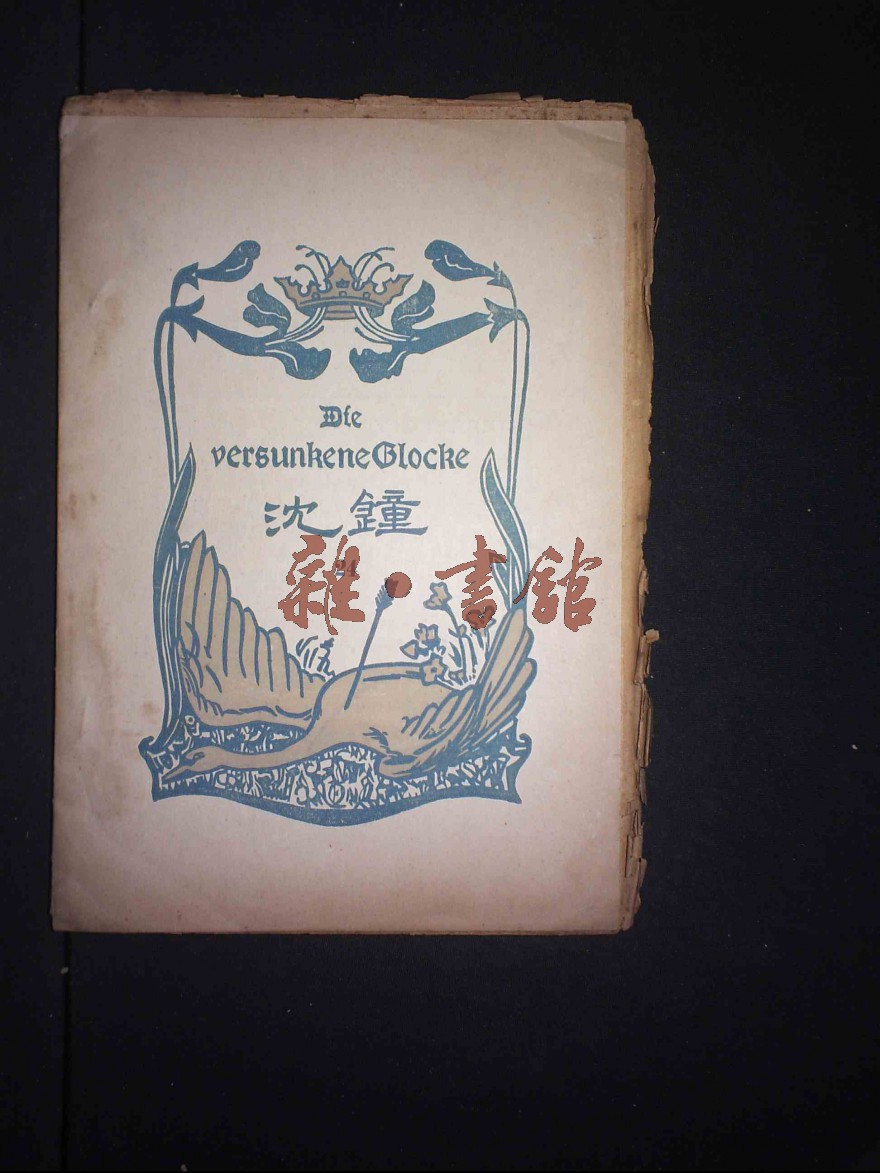 Die
versunkene Glocke
沈鐘
21
雜·書館